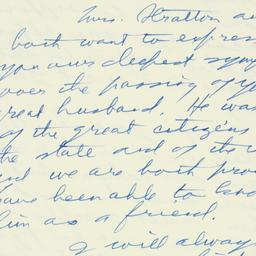 Mrs. Stratton a
both want to express
you our deepest sym
over the passing of y
great husband. He was
of the great citizens
the state and of its
and we are both pro
have been able to kno
him as a friend.
I will always